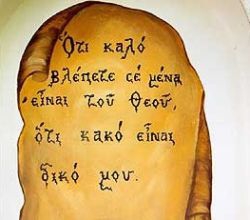 Ὅτι καλό
βλέπετε σέ μένα
εἶναι τοῦ Θεοῦ,
ὅτι κακό εἶναι
δικό μου.